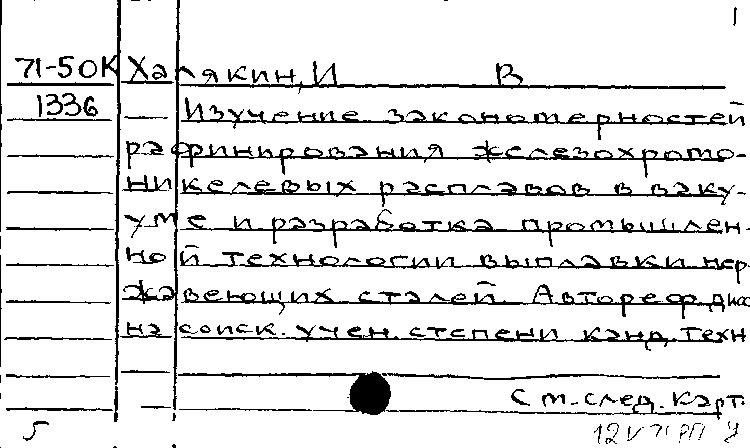 1
71-50К Халякин, И В
1336 Изучение закономерностей
рафинирования железохромо-
никелевых расплавов в ваку-
уме и разработка промышлен-
ной технологии выплавки нер-
жавеющих сталей. Автореф. дис
на соиск. учен. степени канд. техн
См. след. карт.
5 12 V 71 РП